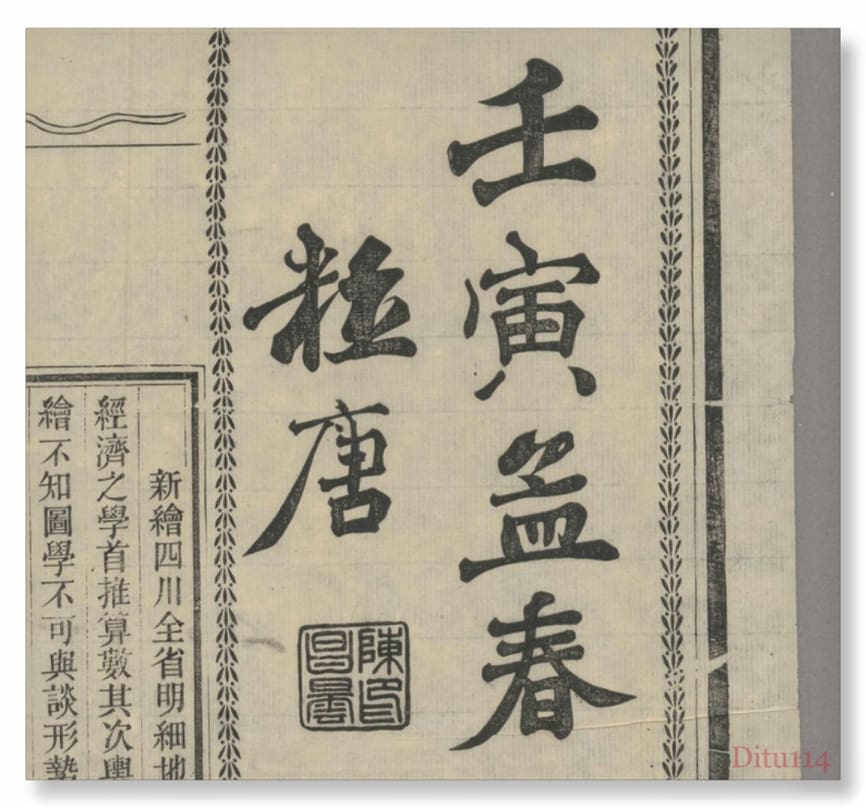 壬寅孟春
粒唐
新繪四川全省明細地
經濟之學首推算數其次輿
繪不知圖學不可與談形勢
Ditu114